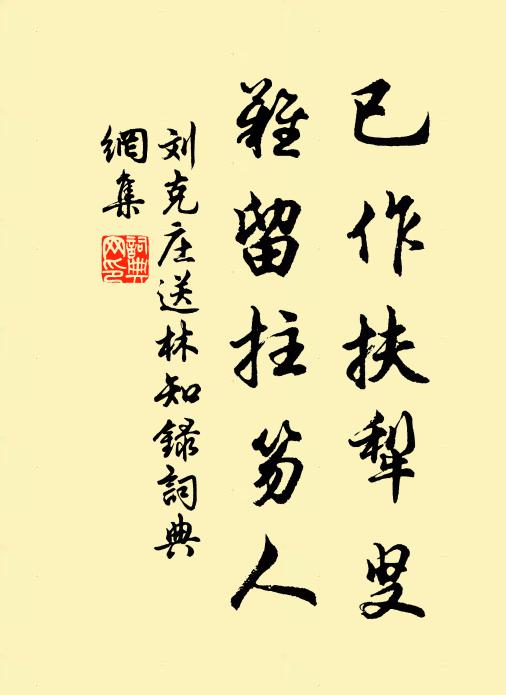 已作扶犁叟
難留拄笏人
刘克庄送林知錄詞典
網集
詞典網印